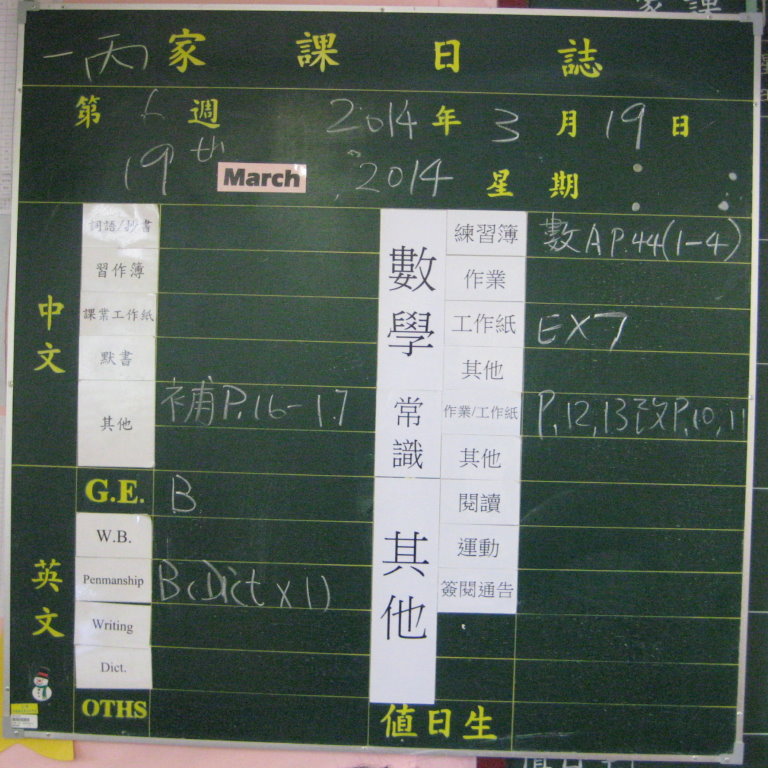 一丙 家課日誌
第 六 週 2014 年 3 月 19 日
19th March, 2014 星期:
中文
詞語/抄書
習作簿
課業工作紙
默書
其他 補P.16-17
英文
G.E. B
W.B.
Penmanship B(Dict x 1)
Writing
Dict.
OTHS
數學
練習簿 數A P.44(1-4)
作業
工作紙 EX7
其他
常識
作業/工作紙 P.12,13改P.10,11
其他
其他
閱讀
運動
簽閱通告
值日生